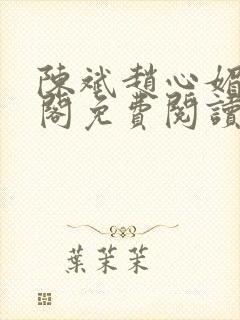 陳斌趙心媚
閣免費閱讀
葉茉茉